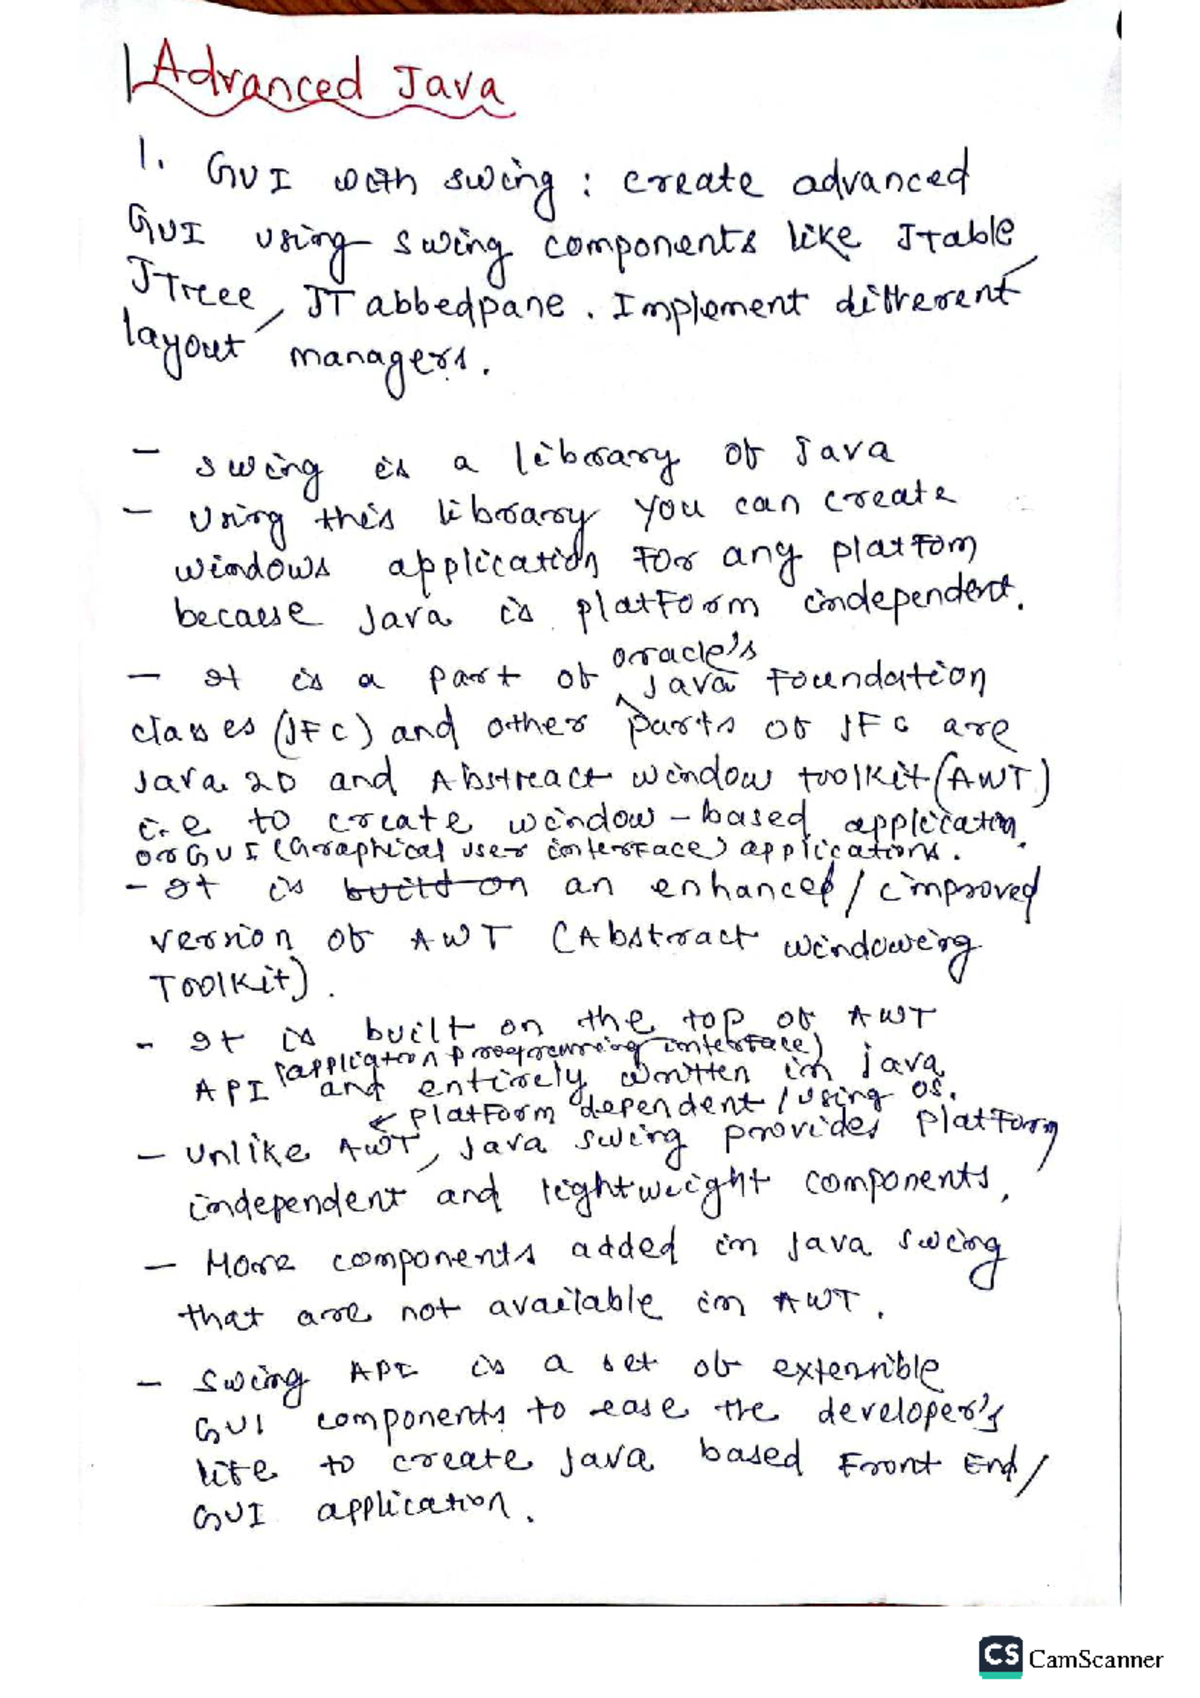 Advanced Java
1. GUI with swing : create advanced
GUI using swing components like JTable
JTree, JTabbedpane. Implement different
layout managers.
- swing is a library of Java
- Using this library you can create
windows application For any platfom
because Java is platform independent.
oracle's
- It is a part of ^ Java Foundation
classes (JFC) and other parts of JFC are
Java 2D and Abstract window toolkit (AWT)
i.e to create window-based application
or GUI (Graphical user interface) applications.
- It is build on an enhanced / improved
version of AWT (Abstract windowing
Toolkit).
- It is built on the top of AWT
(application programming interface)
API and entirely written in java
← platform dependent / using os.
- Unlike AWT, Java swing provides platform
independent and lightweight components.
- More components added in Java swing
that are not available in AWT.
- Swing API is a set of extensible
GUI components to ease the developer's
life to create Java based Front End/
GUI application.
CS CamScanner